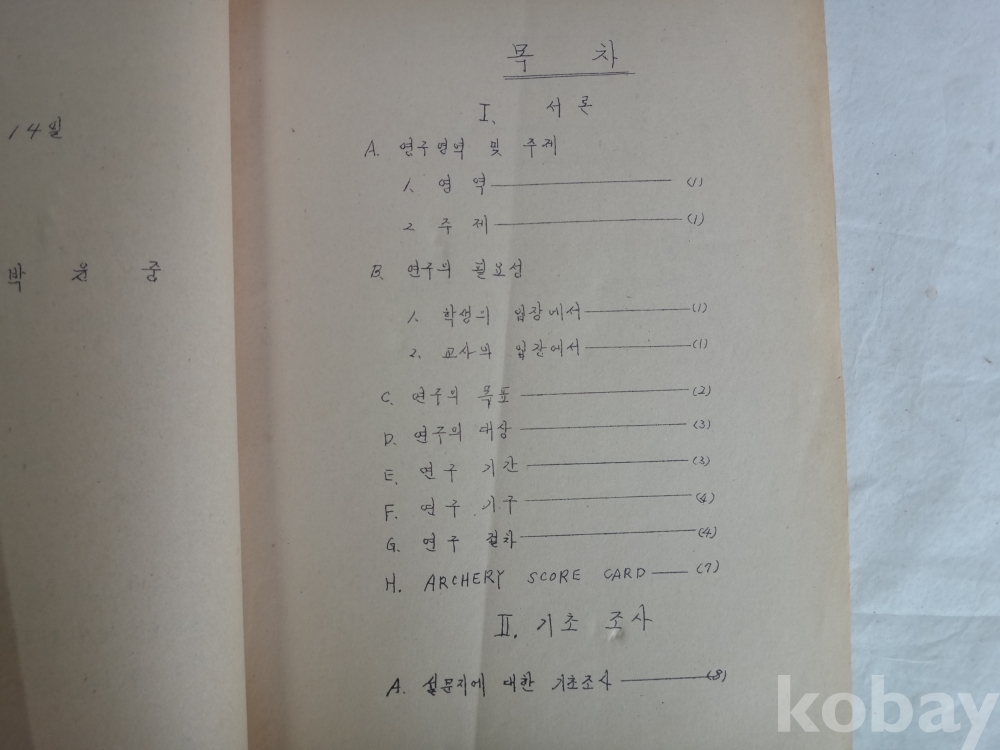 14일
박 윤 중
목 차
I. 서론
A. 연구영역 및 주제
1. 영역 (1)
2 주제 (1)
B. 연구의 필요성
1. 학생의 입장에서 (1)
2. 교사의 입장에서 (1)
C. 연구의 목표 (2)
D. 연구의 대상 (3)
E. 연구 기간 (3)
F. 연구 기구 (4)
G. 연구 절차 (4)
H. ARCHERY SCORE CARD (7)
II. 기초 조사
A. 설문지에 대한 기초조사 (8)
kobay